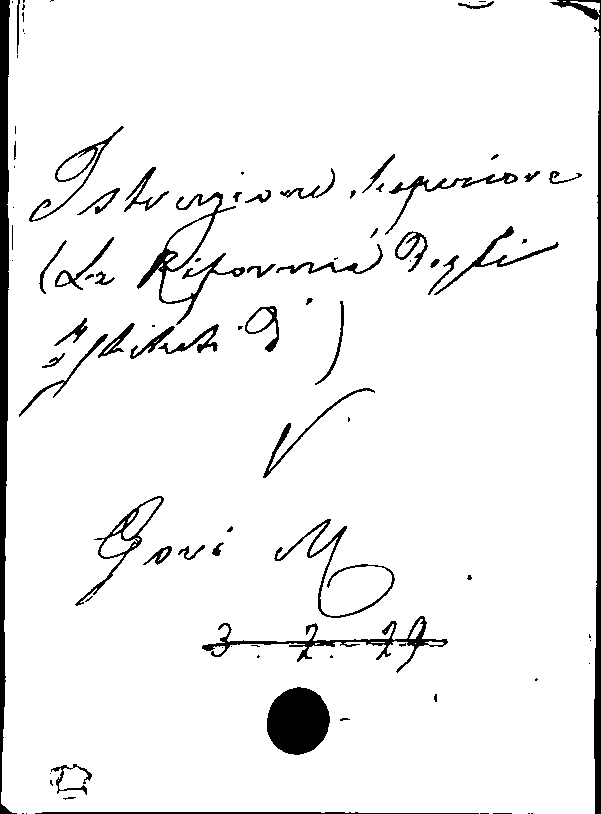 Istruzione Superiore
(La Riforma Degli
Istituti D')
V.
Govi M
3. 2. 29